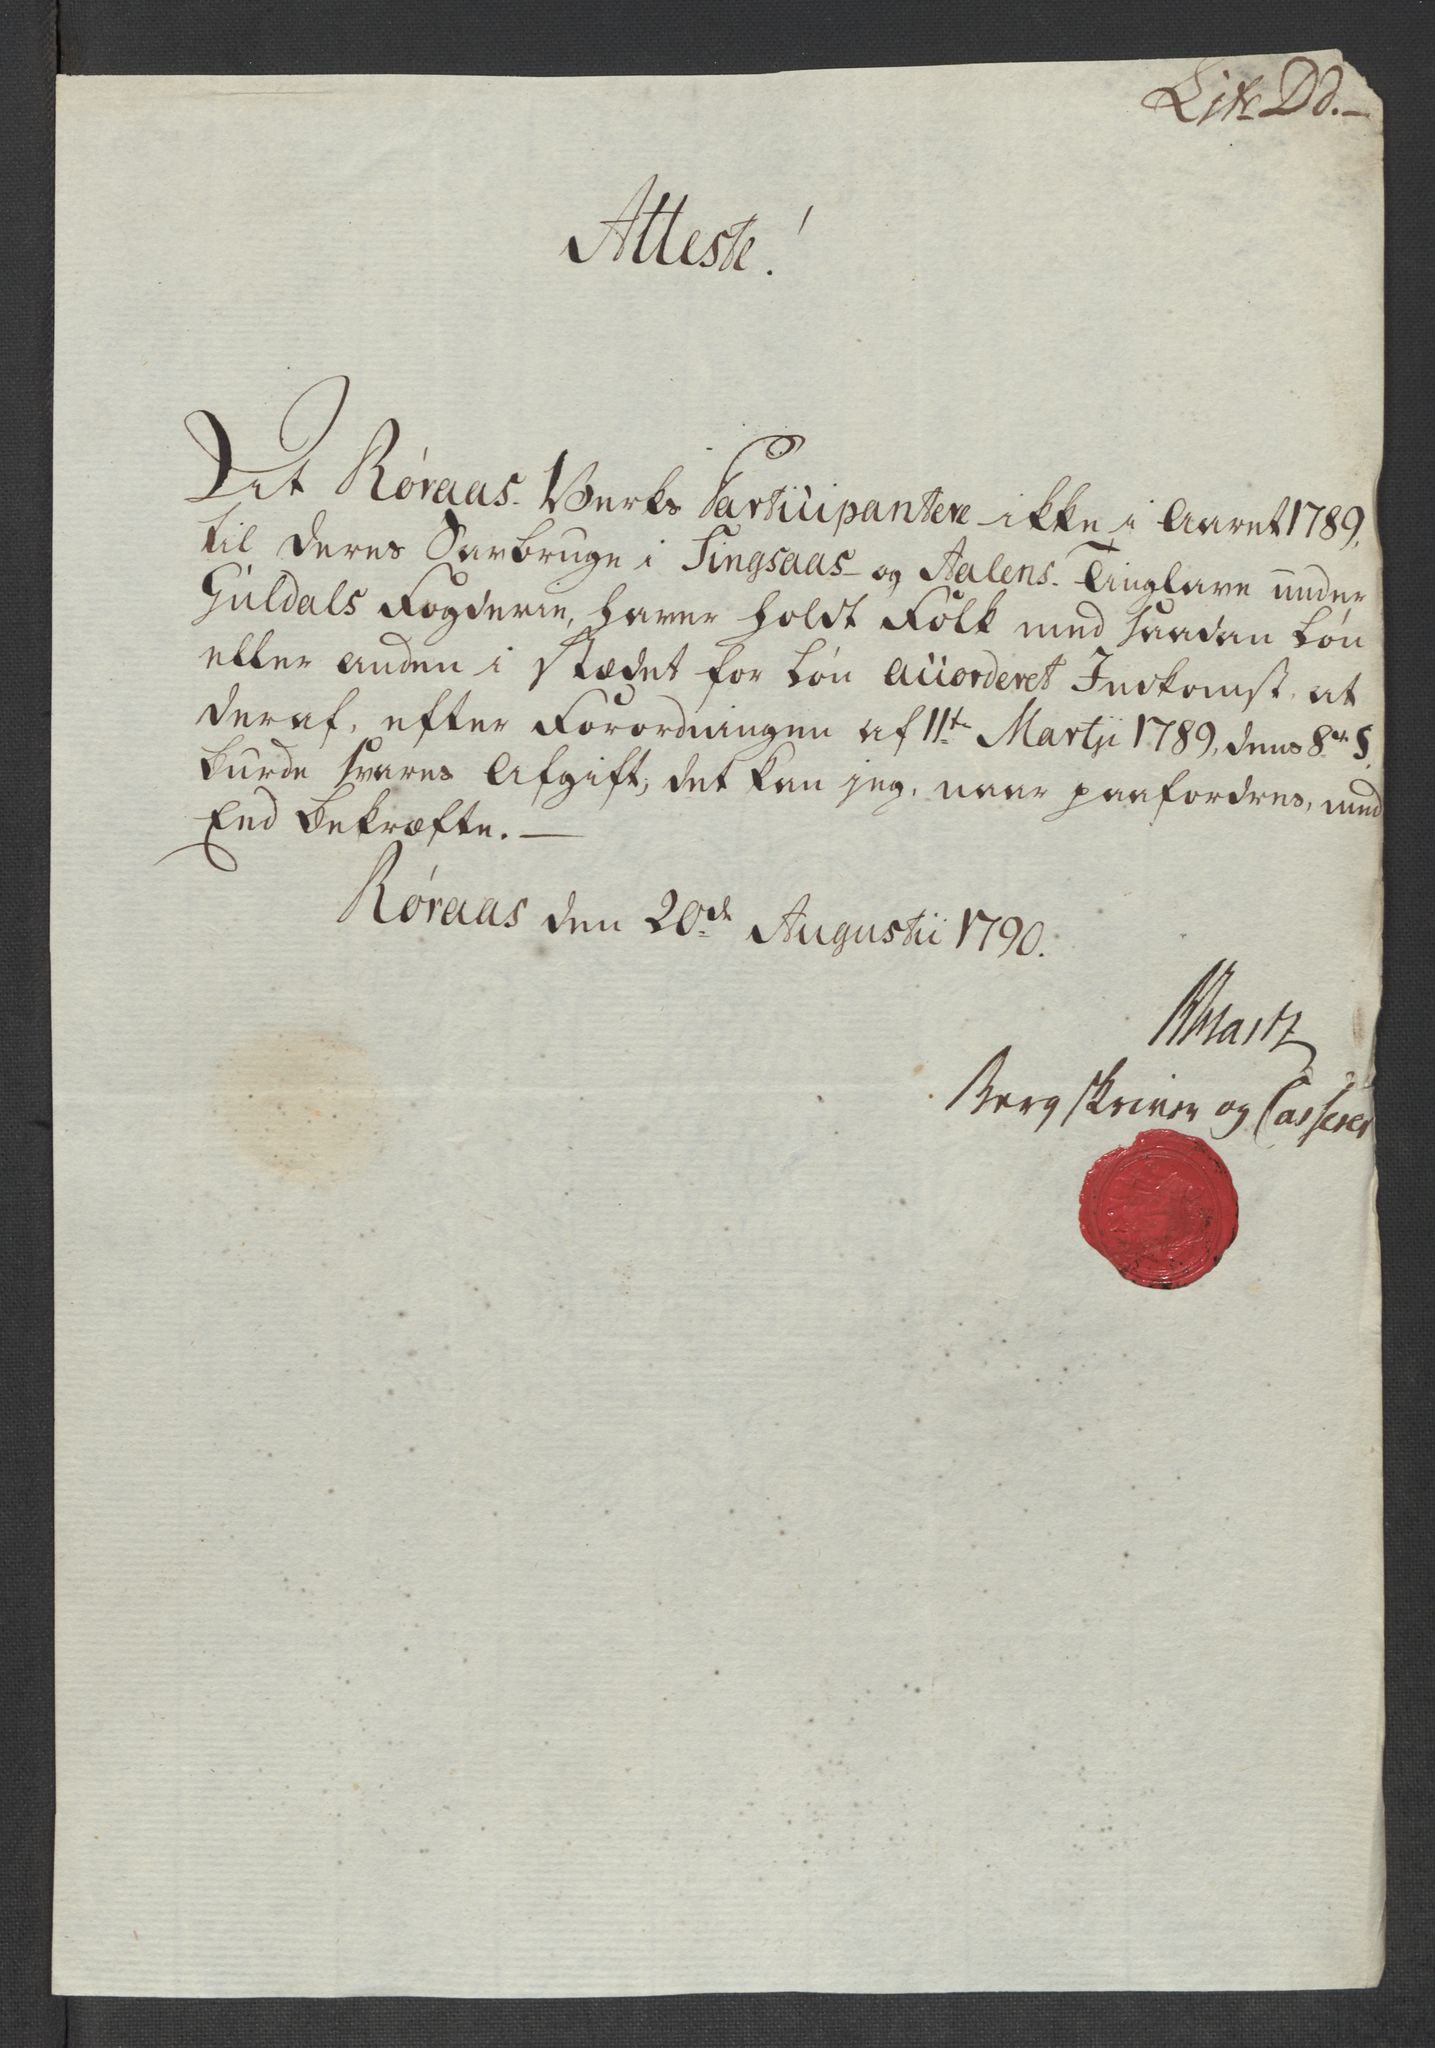 Litr Dd.
Atteste!
Det Røraas Verks Participantere ikke i Aaret 1789.
til deres Savbruge i Singsaas og Aalens Tinglave under
Guldals Fogderie, haver holdt Folk med saadan Løn
eller anden i Stædet for Løn accorderet Indkomst, at
deraf, efter Forordningen af 11te Martji 1789, dens 8de §.
burde svares Afgift; det kan jeg, naar paafordres, med
Eed bekræfte.
Røraas den 20de Augustii 1790.
Bergskriver og Casserer